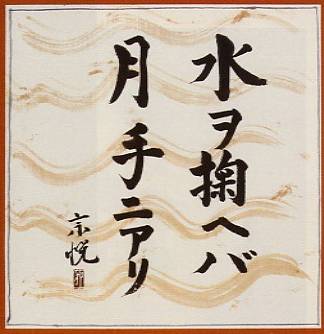 水ヲ掬ヘバ
月手ニアリ
宗悦